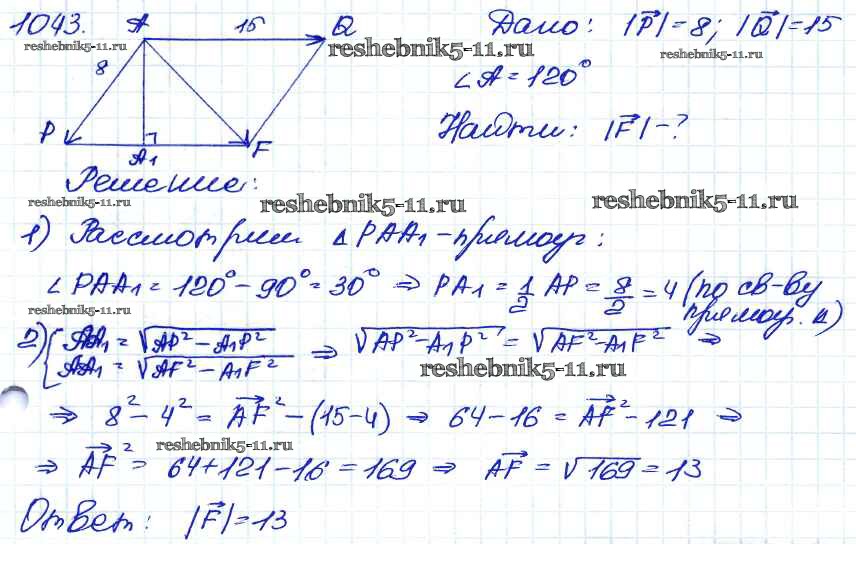 1043. A 15 Q Дано: |P⃗|=8; |Q⃗|=15
reshebnik5-11.ru reshebnik5-11.ru reshebnik5-11.ru
8 ∠A=120°
P A₁ F Найти: |F⃗|-?
Решение:
reshebnik5-11.ru reshebnik5-11.ru reshebnik5-11.ru
1) Рассмотрим ΔPAA₁-прямоуг:
∠PAA₁=120°-90°=30° ⇒ PA₁=1/2 AP=8/2=4 (по св-ву
прямоуг. Δ)
reshebnik5-11.ru
2) { AA₁=√(AP²-A₁P²)
AA₁=√(AF²-A₁F²) ⇒ √(AP²-A₁P²)=√(AF²-A₁F²) ⇒
reshebnik5-11.ru
⇒ 8²-4²=A͞F⃗²-(15-4) ⇒ 64-16=AF⃗²-121 ⇒
reshebnik5-11.ru
⇒ AF⃗²=64+121-16=169 ⇒ AF⃗=√169=13
Ответ: |F⃗|=13